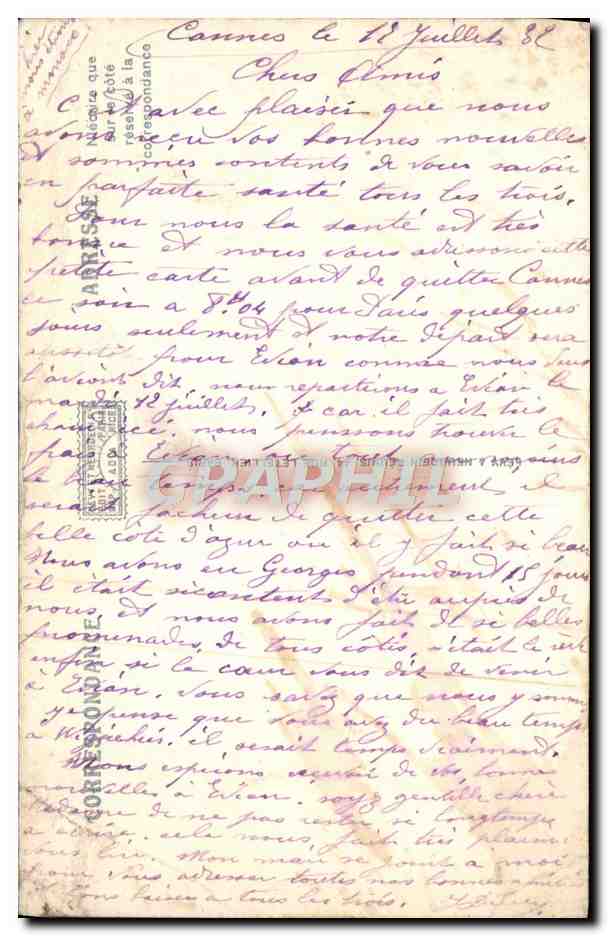 Cannes le 12 Juillets 32
Chers Amis
C'est avec plaisir que nous
avons reçu vos bonnes nouvelles
et sommes contents de vous savoir
en parfaite santé tous les trois.
Pour nous la santé est très
bonne et nous vous adressons cette
petite carte avant de quitter Cannes
ce soir a 8h04 pour Paris quelques
jours seulement et notre départ sera
aussitôt pour Evian comme nous vous
l'avions dit, nous repartions a Evian le
mardi 12 juillets, car il fait très
chaud ici, nous pensons trouver le
à Evian
le beau temps
de quitter cette
belle côte d'azur ou il y fait si beau
Nous avons eu Georges pendant 15 jours
il était si content d'être auprès de
nous et nous avons fait de si belles
promenades de tous côtés, c'était le rêve
enfin si le cœur vous dit de venir
à Evian. Vous savez que nous y sommes
je pense que vous avez du beau temps
a il serait temps vraiment.
Nous espérons recevoir de vos bonnes
nouvelles à Evian, soyez gentille chère
Madame de ne pas rester si longtemps
a écrire, cela nous fait très plaisir
vous lire. Mon mari se joint a moi
pour vous adresser toutes nos bonnes amitiés
baisers a tous les trois.
hier
nous étions
à monaco
N'écrire que
sur le côté
réservé à la
correspondance
ADRESSE
CORRESPONDANCE
LEVY & NEURDEIN RÉUNIS, 44, RUE LETELLIER, PARIS
CPAPHIL